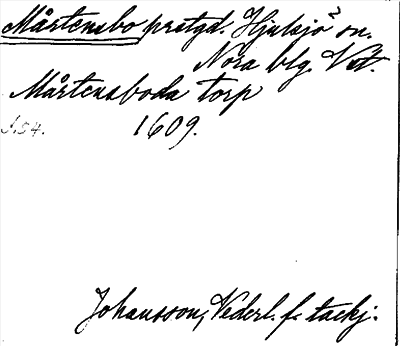 Mårtensbo prstgd. Hjulsjö sn.
Nora blg. Vstl.
Mårtensboda torp
1609.
J.54.
Johansson, Nederl. f. tackj.